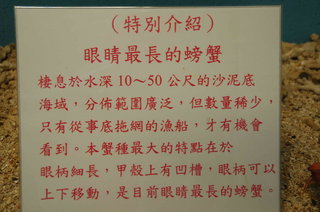 （特別介紹）
眼睛最長的螃蟹
棲息於水深10～50公尺的沙泥底
海域，分佈範圍廣泛，但數量稀少，
只有從事底拖網的漁船，才有機會
看到。本蟹種最大的特點在於
眼柄細長，甲殼上有凹槽，眼柄可以
上下移動，是目前眼睛最長的螃蟹。